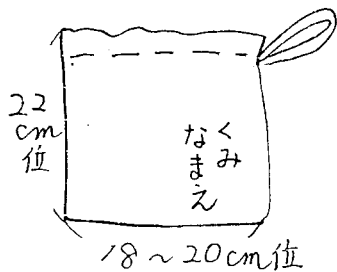 22
cm
位
くみ
なまえ
18～20cm位